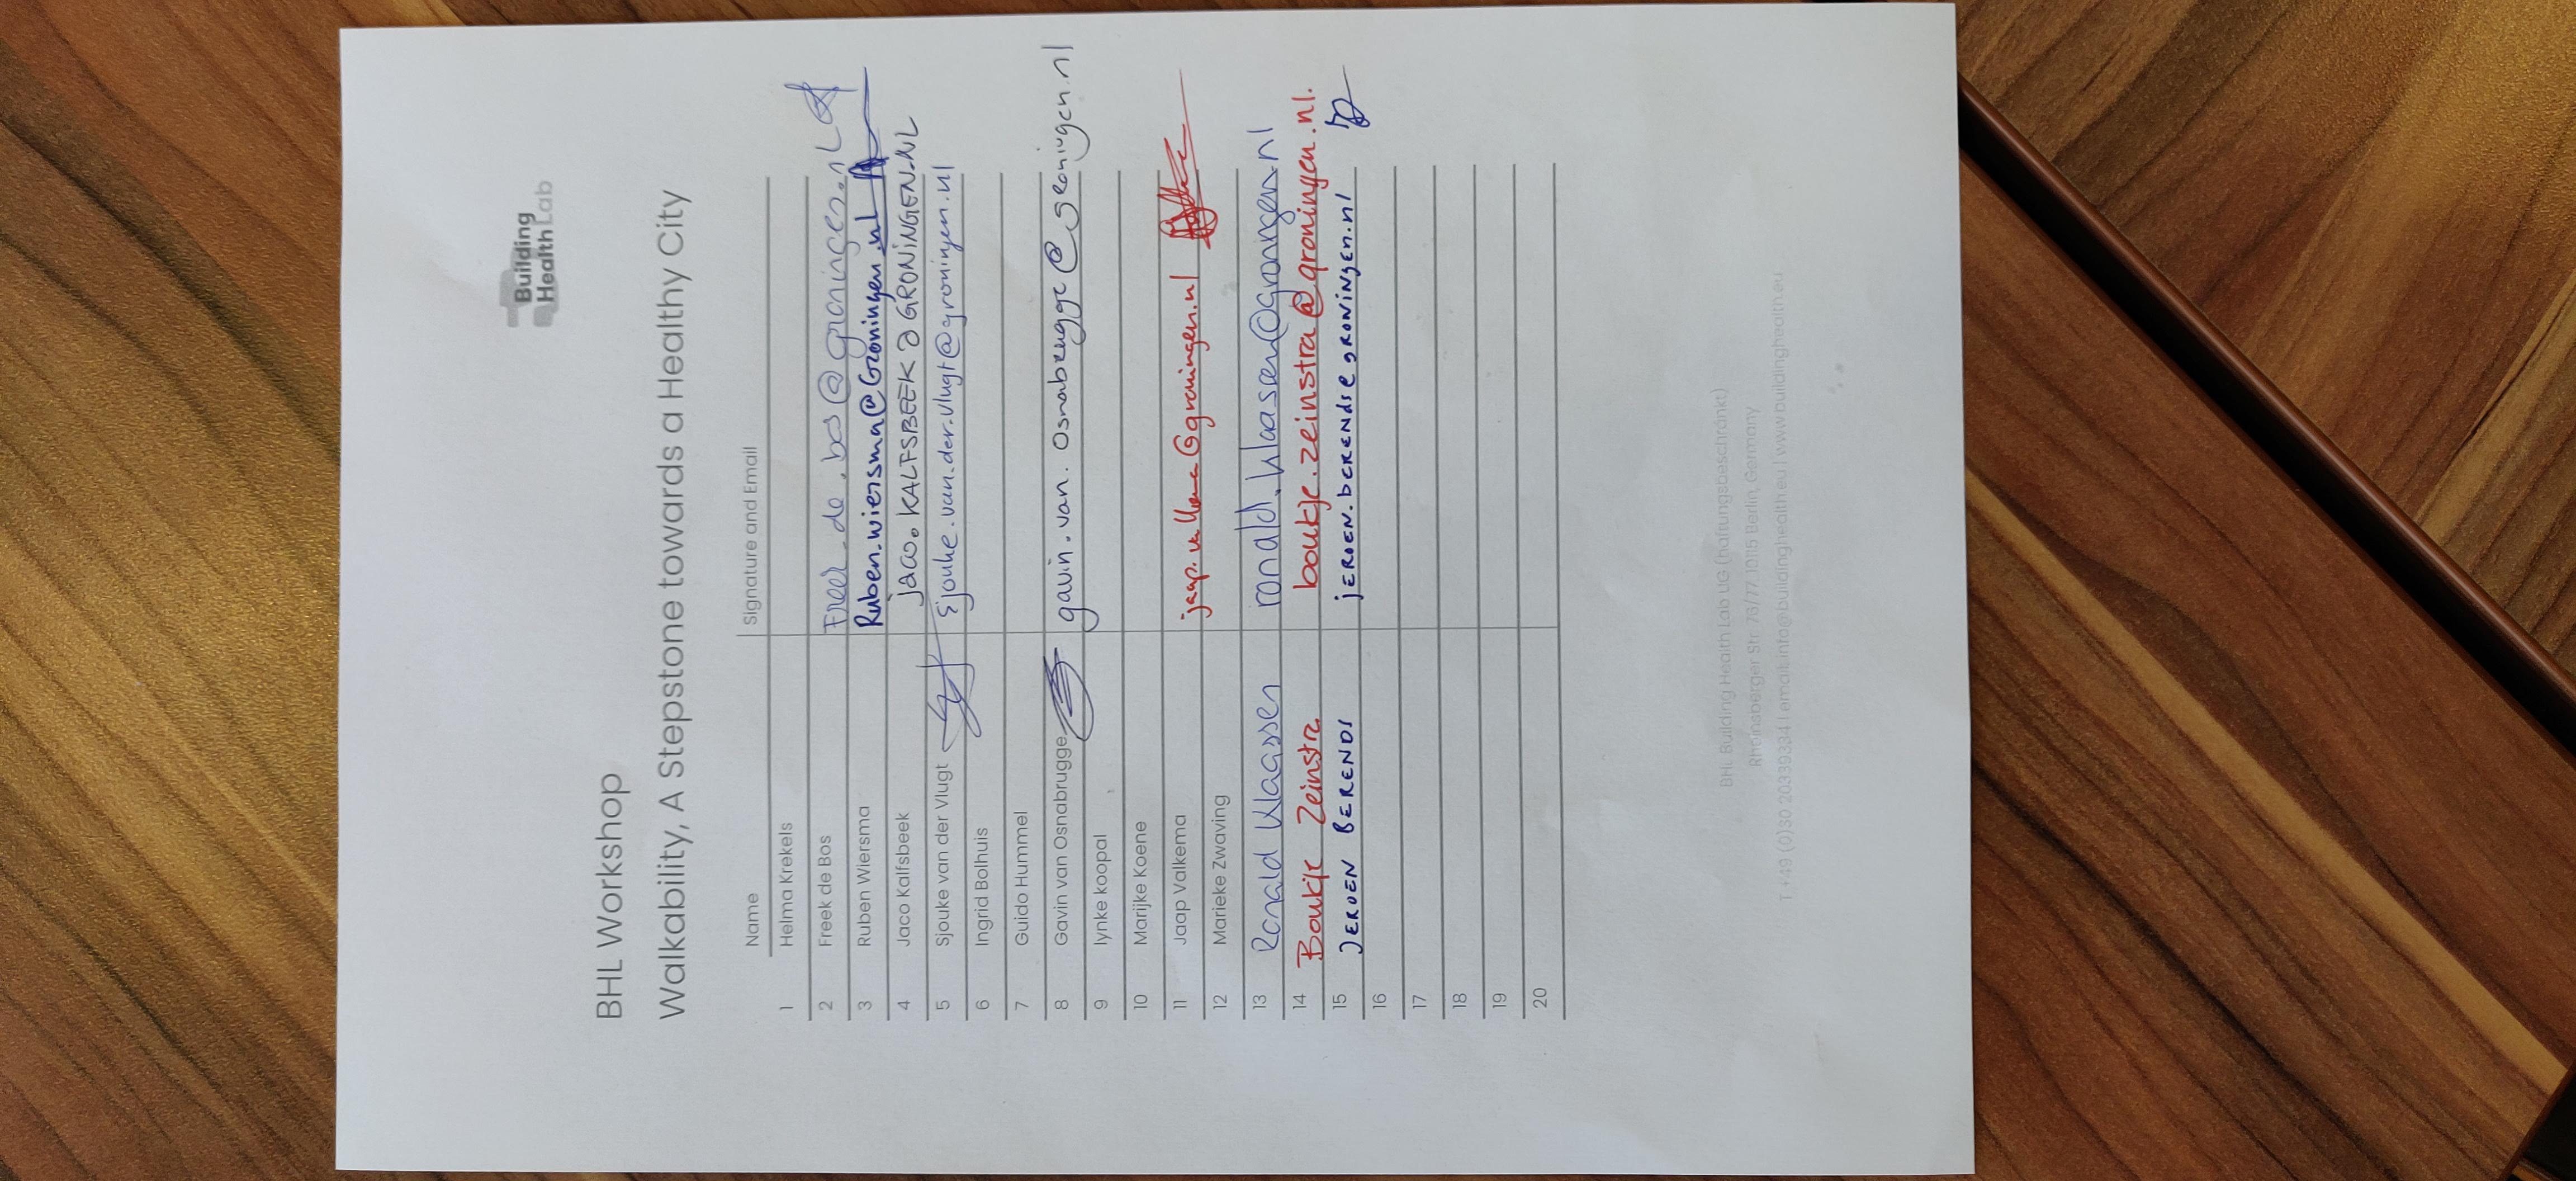 Building
Health Lab
BHL Workshop
Walkability, A Stepstone towards a Healthy City
Name Signature and Email
1 Helma Krekels
2 Freek de Bos Freek.de.bos@groningen.nl
3 Ruben Wiersma Ruben.wiersma@Groningen.nl
4 Jaco Kalfsbeek jaco.KALFSBEEK@GRONINGEN.NL
5 Sjouke van der Vlugt Sjouke.van.der.vlugt@groningen.nl
6 Ingrid Bolhuis
7 Guido Hummel
8 Gavin van Osnabrugge gavin.van.Osnabrugge@groningen.nl
9 lynke koopal
10 Marijke Koene
11 Jaap Valkema
12 Marieke Zwaving
13 Ronald Klaassen ronald.klaassen@groningen.nl
14 Boukje Zeinstra boukje.zeinstra@groningen.nl.
15 JEROEN BERENDS jEROEN.bERENDS@gRONINgEN.nl
16
17
18
19
20
BHL Building Health Lab UG (haftungsbeschränkt)
Rheinsberger Str. 76/77 10115 Berlin, Germany
T +49 (0)30 20339334 I email: info@buildinghealth.eu I www.buildinghealth.eu